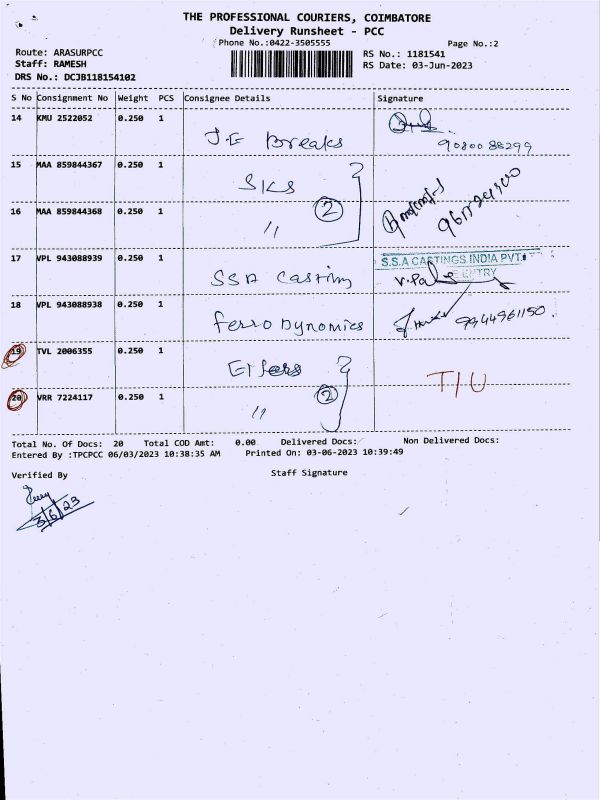 THE PROFESSIONAL COURIERS, COIMBATORE
Delivery Runsheet - PCC
Phone No.:0422-3505555
Page No.:2
Route: ARASURPCC
RS No.: 1181541
Staff: RAMESH
RS Date: 03-Jun-2023
DRS No.: DCJB118154102
S No Consignment No Weight PCS Consignee Details Signature
14 KMU 2522052 0.250 1
J.E Breaks
9080088299
15 MAA 859844367 0.250 1
SKS
16 MAA 859844368 0.250 1
2
"
17 VPL 943088939 0.250 1
SSA Casting
S.S.A CASTINGS INDIA PVT.
ENTRY
18 VPL 943088938 0.250 1
Ferro Dynomics
9944961150.
19 TVL 2006355 0.250 1
T/U
20 VRR 7224117 0.250 1
2
"
Total No. Of Docs: 20 Total COD Amt: 0.00 Delivered Docs: Non Delivered Docs:
Entered By :TPCPCC 06/03/2023 10:38:35 AM Printed On: 03-06-2023 10:39:49
Verified By Staff Signature
3/6/23